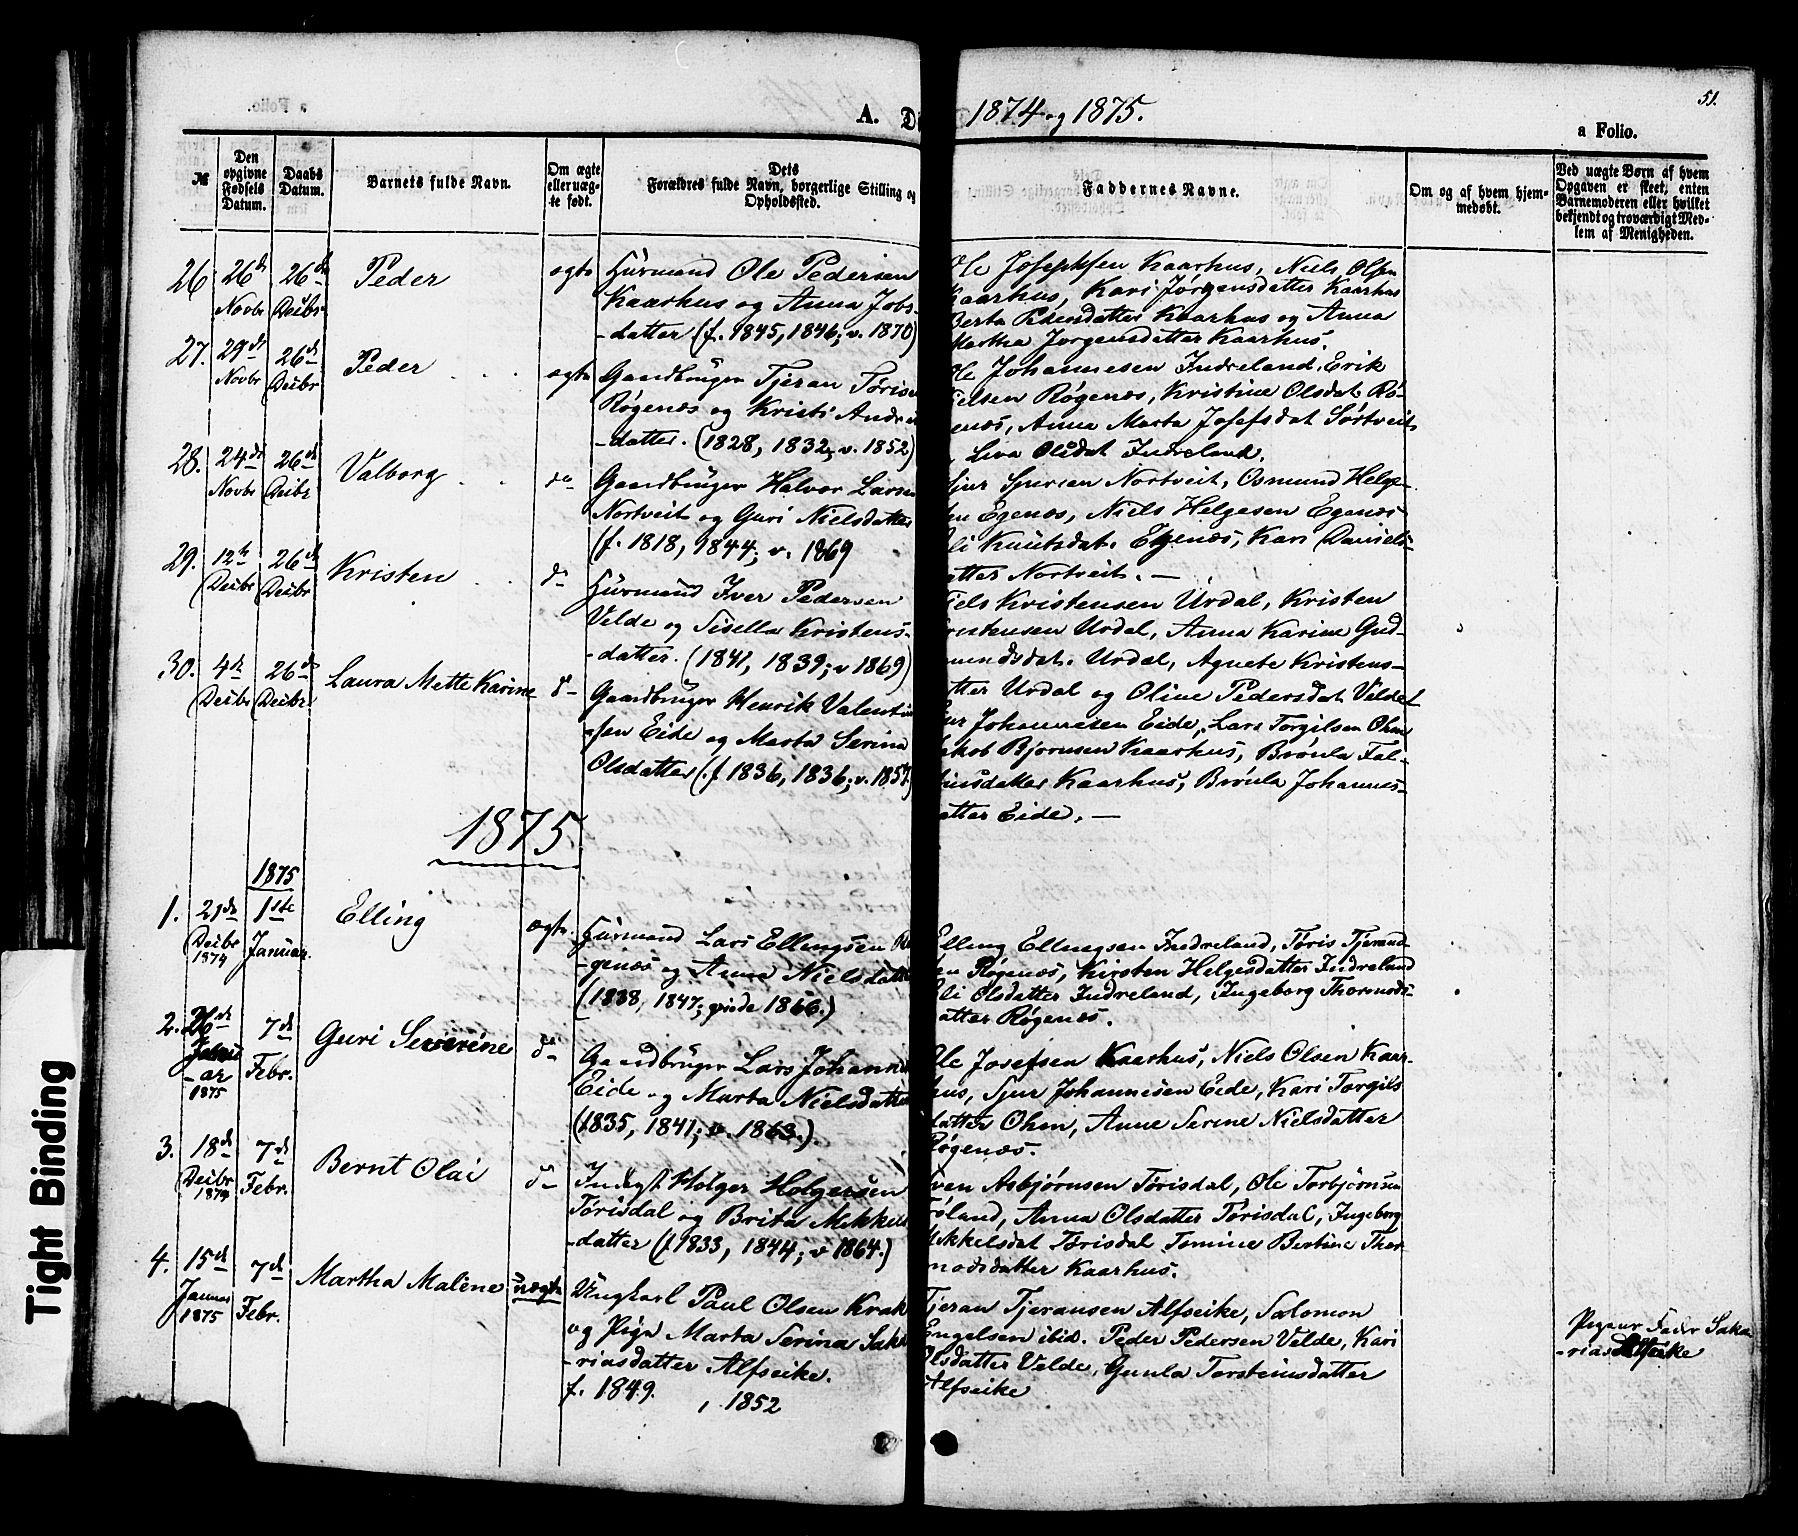 51.
A. D
1874 og 1875.
a Folio.
№
Den opgivne Fødsels Datum.
Daabs Datum.
Barnets fulde Navn.
Om ægte eller uægte født.
Dets Forældres fulde Navn, borgerlige Stilling og Opholdssted.
Faddernes Navne.
Om og af hvem hjemmedøbt.
Ved uægte Børn af hvem Opgaven er skeet, enten Barnemoderen eller hvilket bekjendt og troværdigt Medlem af Menigheden.
26 26de Novbr 26de Decbr Peder ægte
Huusmand Ole Pedersen
Kaarhus og Anna Jobs-
-datter (f. 1845, 1846; v. 1870)
Ole Josephsen Kaarhus, Niels Olsen
Kaarhus, Kari Jørgensdatter Kaarhus
Berta Pedersdatter Kaarhus og Anna
Martha Jørgensdatter Kaarhus.
27. 29de Novbr 26de Decbr Peder ægte
Gaardbruger Tjeran Tøris
Røgenæs og Kristi Andr
-datter. (1828, 1832, v. 1852)
Ole Johannesen Indreland, Erik
elsen Røgenæs, Kristine Olsdat. Rø-
enæs, Anna Marta Josefsdat Sørtveit
Liva Olsdat Indreland.
28. 24de Novbr 26de Decbr Valborg do
Gaardbruger Halvor Larse
Nortveit og Guri Nielsdatter
(f. 1818, 1844; v. 1869
Sjur Sjursen Nortveit, Osmund Helge-
sen Egenæs, Niels Helgesen Egenæs
li Knutsdat. Egenæs, Kari Daniels-
atter Nortveit. —
29. 12te Decbr 26de Decbr Kristen do
Huusmand Iver Pedersen
Velde og Sisella Kristens-
-datter. (1841, 1839; v 1869)
Niels Kristensen Urdal, Kristen
ristensen Urdal, Anna Karine Gud-
mundsdat. Urdal, Agnete Kristens-
atter Urdal og Oline Pedersdat Velde
30. 4de Decbr 26de Decbr Laura Mette Karine do
Gaardbruger Henrik Valentin
-sen Eide og Marta Serina
Olsdatter (f 1836, 1836; v. 1857)
Sjur Johannesen Eide, Lars Torgilsen Ohm
Jakob Bjørnsen Kaarhus, Brønla Fal-
insdatter Kaarhus, Brønla Johannes-
atter Eide. —
1875
1875
1. 21de Decbr 1874 1ste Januar. Elling ægte.
Huusmand Lars Ellingsen Rø
-genæs og Anna Nielsdatt
(1838, 1847; givde 1866.)
Elling Ellingsen Indreland, Tøris Tjerand-
sen Røgenæs, Kirsten Helgesdatter Indreland
li Olsdatter Indreland, Ingeborg Thormods-
atter Røgenæs.
2. 26de Janu-ar 1875 7de Febr. Guri Severine do
Gaardbruger Lars Johanne
Eide og Marta Nielsdatter
(1835, 1841; v. 1863.)
Ole Josefsen Kaarhus, Niels Olsen Kaar-
hus, Sjur Johannesen Eide, Kari Torgils
datter Ohm, Anne Serine Nielsdatter
Røgenæs.
3. 18de Decbr 1874 7de Febr. Bernt Olai do
Inderst Holger Holgersen
Tørisdal og Brita Mikkels
-datter (f. 1833, 1844; v 1864.)
ven Asbjørnsen Tørisdal, Ole Torbjørnsen
Frøland, Anna Olsdatter Tørisdal, Ingeborg
Mikkelsdat Tørisdal Tomine Bertine Thor
modsdatter Kaarhus.
4. 15de Januar 1875 7de Febr. Martha Malene uægte
Ungkarl Paul Olsen Krak
og Pige Marta Serina Saka
-riasdatter Alfseike.
f. 1849. , 1852
Tjeran Tjeransen Alfseike, Salomon
Engelsen ibid. Peder Pedersen Velde, Kari
Olsdatter Velde, Gunla Torsteinsdatter
Alfseike
Pigens Fader Saka
-rias Alfseike
Tight Binding